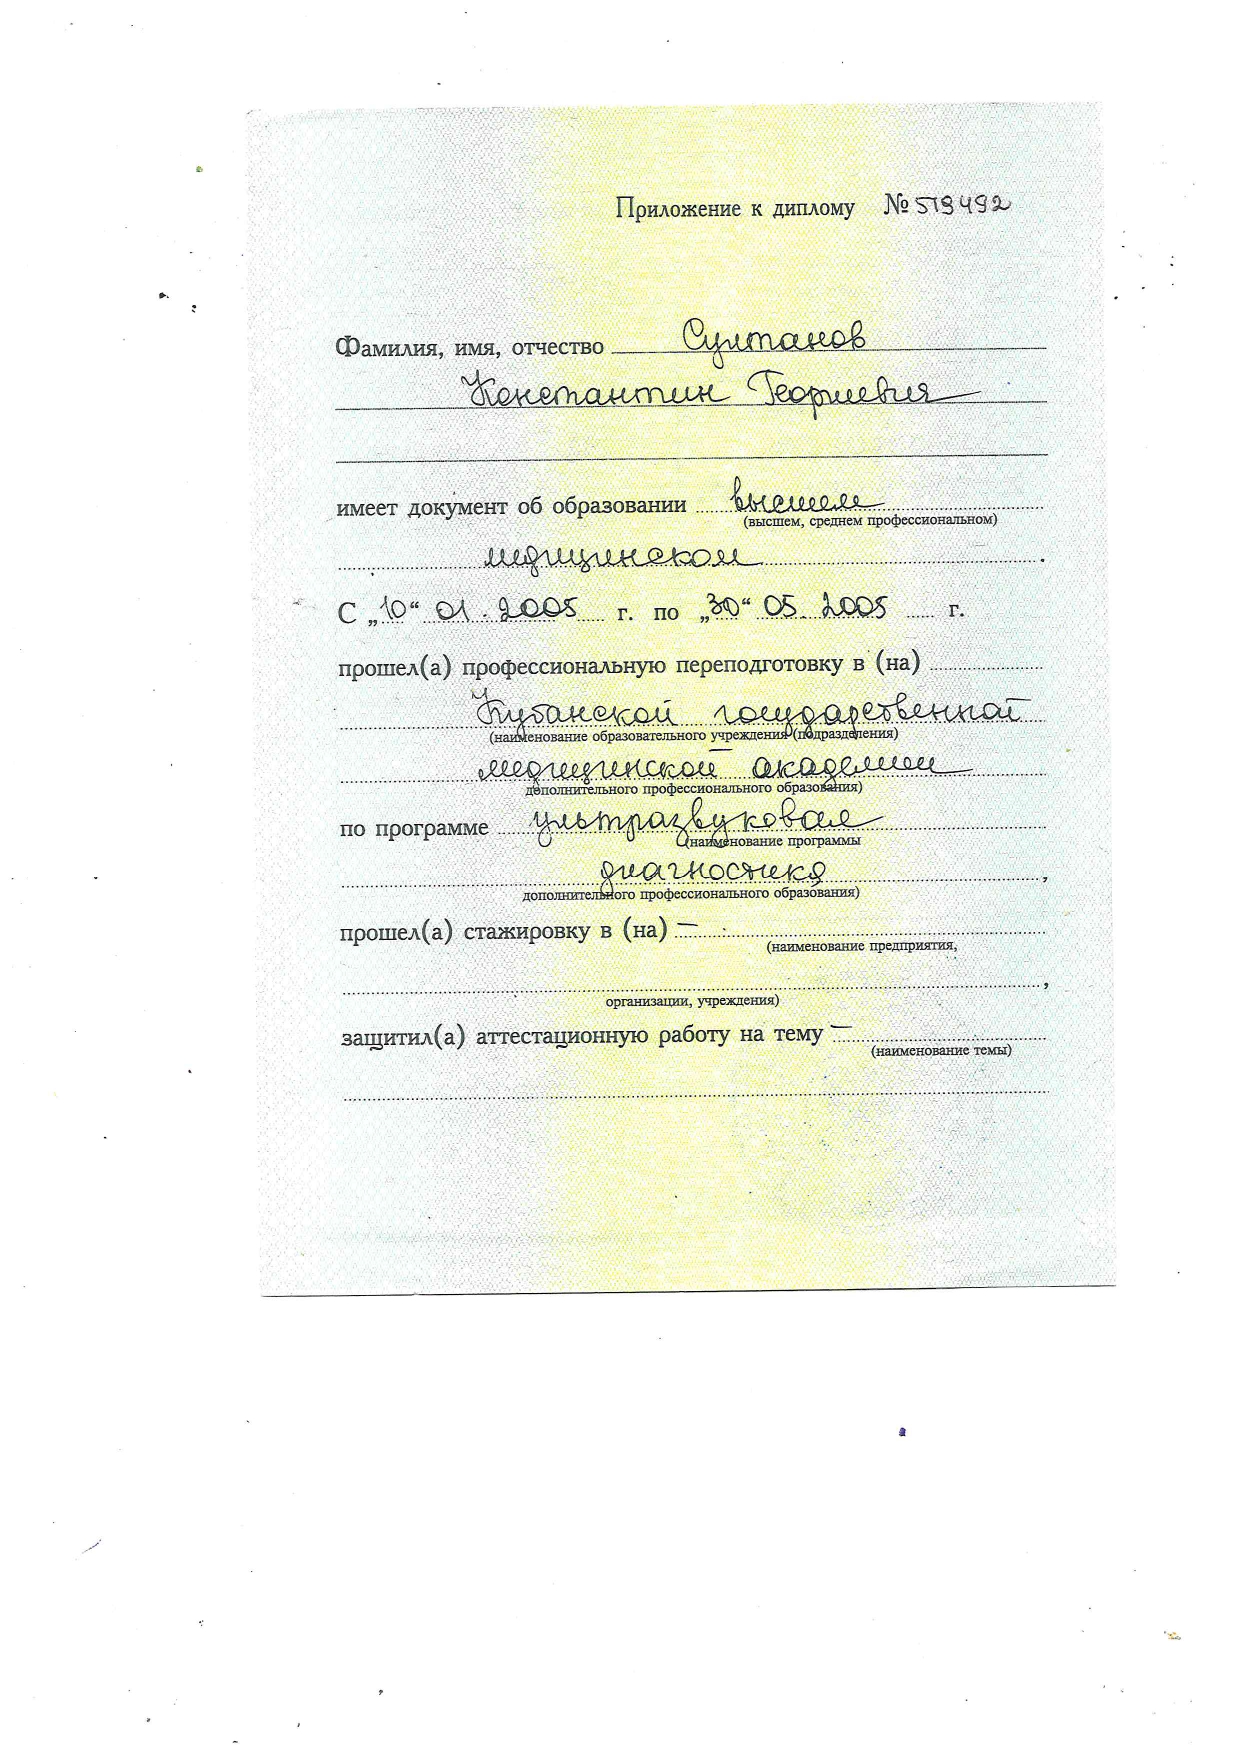 Приложение к диплому № 519492
Фамилия, имя, отчество Султанов
Константин Георгиевич
имеет документ об образовании высшем
(высшем, среднем профессиональном)
медицинском.
С „10“ 01. 2005 г. по „30“ 05. 2005 г.
прошел(а) профессиональную переподготовку в (на)
Кубанской государственной
(наименование образовательного учреждения (подразделения)
медицинской академии
дополнительного профессионального образования)
по программе ультразвуковая
(наименование программы
диагностика,
дополнительного профессионального образования)
прошел(а) стажировку в (на) —
(наименование предприятия,
,
организации, учреждения)
защитил(а) аттестационную работу на тему —
(наименование темы)